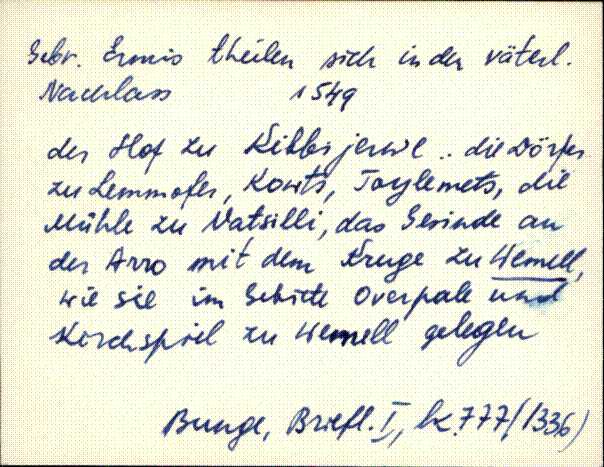 Gebr. Ermis theilen sich in den väterl.
Nachlass 1549
der Hof zu Kibbijerwe .. die Dörfer
zu Lemmofer, Kowts, Toylemets, die
Mühle zu Vatsilli, das Gesinde an
der Arro mit dem Kruge zu Wemell,
wie sie im Gebiete Overpale und
Kirchspiel zu Wemell gelegen
Bunge, Briefl. I, lk 777 (1336)